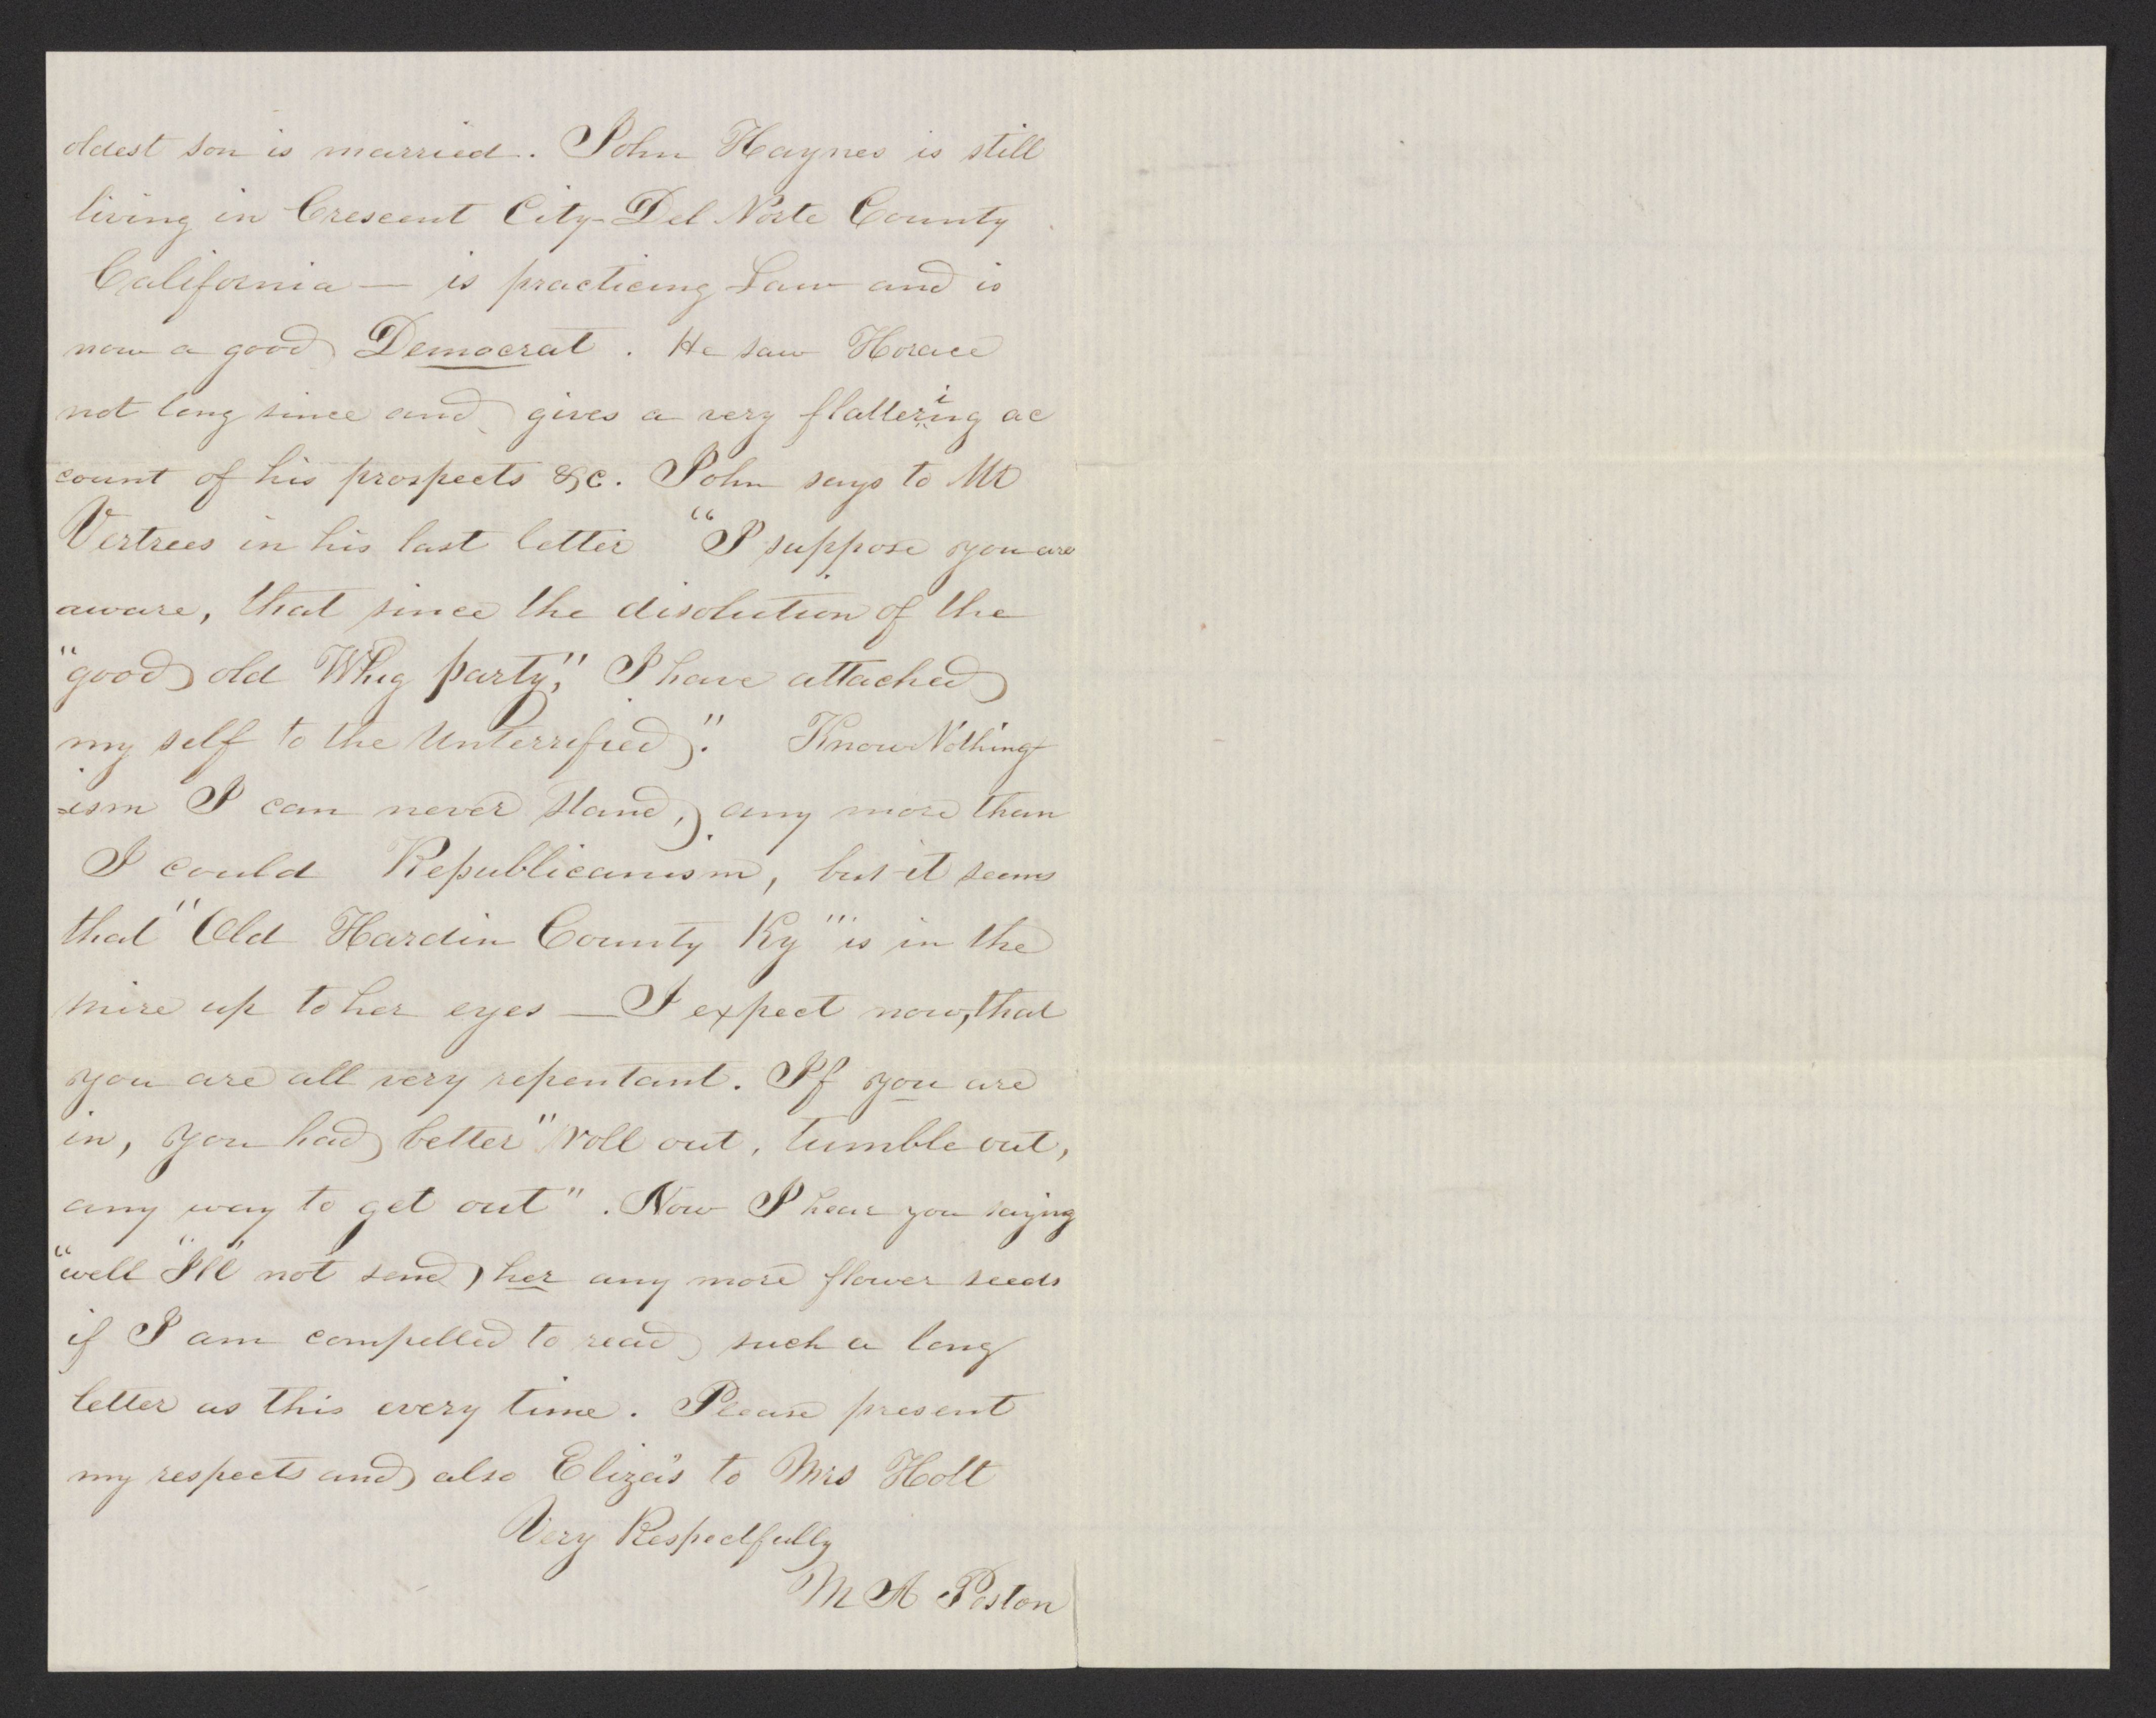 oldest son is married. John Haynes is still
living in Crescent City - Del Norte County
California — is practicing Law and is
now a good Democrat. He saw Horace
not long since and gives a very flattering ac
count of his prospects &c. John says to Mr
Vertrees in his last letter "I suppose you are
aware, that since the disolution of the
"good old Whig party," I have attached
my self to the Unterrified." Know Nothing
=ism I can never stand, any more than
I could Republicanism, but it seems
that "Old Hardin County Ky" is in the
mire up to her eyes — I expect now, that
you are all very repentant. If you are
in, you had better "roll out, tumble out,
any way to get out". Now I hear you saying
"well "I'll" not send her any more flower seeds
if I am compelled to read such a long
letter as this every time. Please present
my respects and also Eliza's to Mrs Holt
Very Respectfully
M A Poston